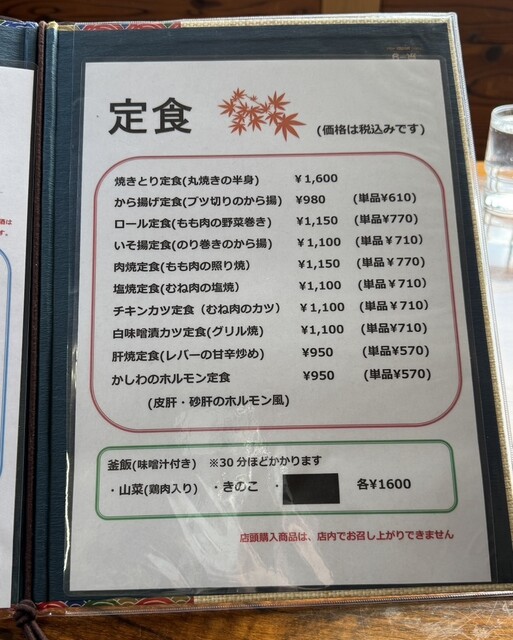 定食
(価格は税込みです)
焼きとり定食(丸焼きの半身) ¥1,600
から揚げ定食(ブツ切りのから揚) ¥980 (単品¥610)
ロール定食(もも肉の野菜巻き) ¥1,150 (単品¥770)
いそ揚定食(のり巻きのから揚) ¥1,100 (単品¥710)
肉焼定食(もも肉の照り焼) ¥1,150 (単品¥770)
塩焼定食(むね肉の塩焼) ¥1,100 (単品¥710)
チキンカツ定食(むね肉のカツ) ¥1,100 (単品¥710)
白味噌漬カツ定食(グリル焼) ¥1,100 (単品¥710)
肝焼定食(レバーの甘辛炒め) ¥950 (単品¥570)
かしわのホルモン定食 ¥950 (単品¥570)
(皮肝・砂肝のホルモン風)
釜飯(味噌汁付き) ※30分ほどかかります
・山菜(鶏肉入り) ・きのこ ・ 各¥1600
店頭購入商品は、店内でお召し上がりできません